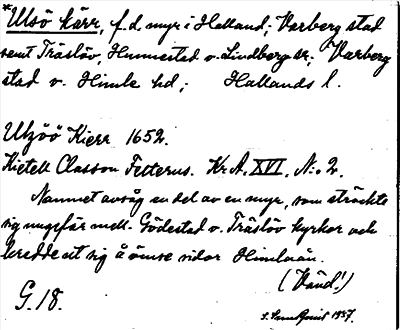 *Ulsö kärr, f.d. myr i Halland; Varberg stad
samt Träslöv, Hunnestad o. Lindberg sr. Varberg
stad o. Himle hd; Hallands l.
Ulzöö Kierr 1652.
Kietell Classon Felterus. Kr. A. XVI. N:o 2.
Namnet avsåg en del av en myr, som sträckte
sig ungefär mell. Gödestad o. Träslöv kyrkor och
bredde ut sig å ömse sidor Himleån.
(Vänd!)
G. 18.
1957.